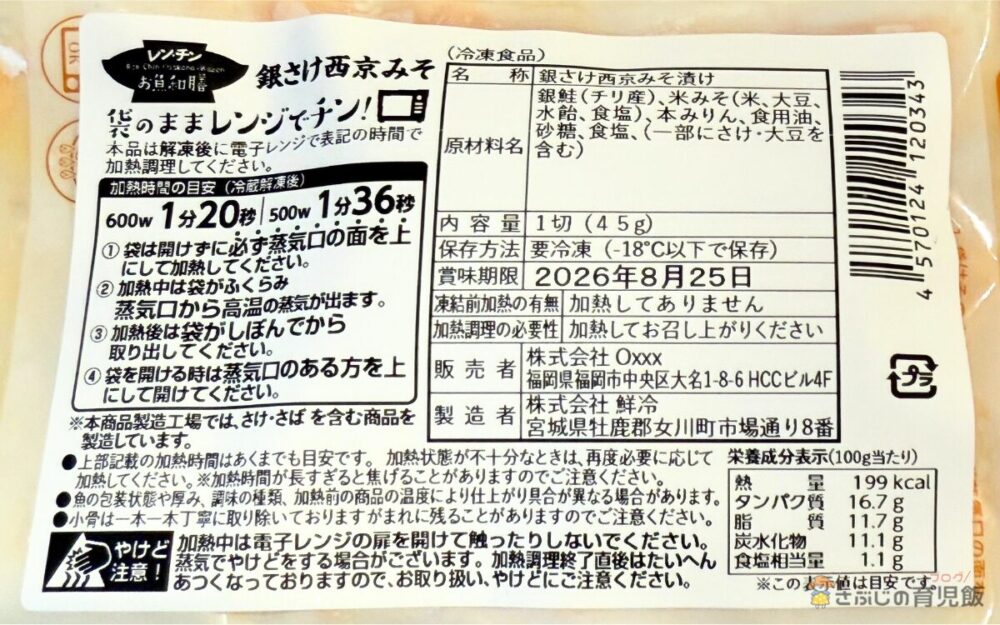 レンチン
お魚和膳
銀さけ西京みそ
袋のままレンジでチン!
本品は解凍後に電子レンジで表記の時間で
加熱調理してください。
加熱時間の目安(冷蔵解凍後)
600w 1分20秒 500w 1分36秒
① 袋は開けずに必ず蒸気口の面を上
にして加熱してください。
② 加熱中は袋がふくらみ
蒸気口から高温の蒸気が出ます。
③ 加熱後は袋がしぼんでから
取り出してください。
④ 袋を開ける時は蒸気口のある方を上
にして開けてください。
※本商品製造工場では、さけ・さば を含む商品を
製造しています。
(冷凍食品)
名 称 銀さけ西京みそ漬け
原材料名 銀鮭(チリ産)、米みそ(米、大豆、
水飴、食塩)、本みりん、食用油、
砂糖、食塩、(一部にさけ・大豆を
含む)
内容量 1切(45g)
保存方法 要冷凍(-18℃以下で保存)
賞味期限 2026年8月25日
凍結前加熱の有無 加熱してありません
加熱調理の必要性 加熱してお召し上がりください
販売者 株式会社 Oxxx
福岡県福岡市中央区大名1-8-6 HCCビル4F
製造者 株式会社 鮮冷
宮城県牡鹿郡女川町市場通り8番
4 570124 120343
プラ
●上部記載の加熱時間はあくまでも目安です。 加熱状態が不十分なときは、再度必要に応じて
加熱してください。※加熱時間が長すぎると焦げることがありますのでご注意ください。
●魚の包装状態や厚み、調味の種類、加熱前の商品の温度により仕上がり具合が異なる場合があります。
●小骨は一本一本丁寧に取り除いておりますがまれに残ることがありますのでご注意ください。
やけど
注意!
加熱中は電子レンジの扉を開けて触ったりしないでください。
蒸気でやけどをする場合がございます。加熱調理終了直後はたいへん
あつくなっておりますので、お取り扱い、やけどにご注意ください。
栄養成分表示(100g当たり)
熱量 199 kcal
タンパク質 16.7 g
脂質 11.7 g
炭水化物 11.1 g
食塩相当量 1.1 g
※この表示値は目安です。
ブログ/
さぶじの育児飯